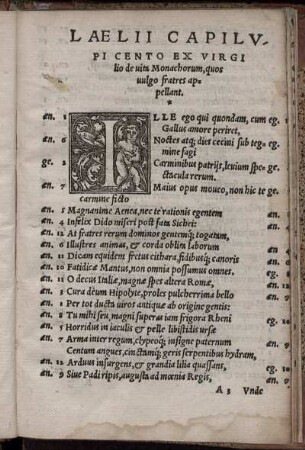 LAELII CAPILV-
PI CENTO EX VIRGI
lio de uita Monachorum, quos
uulgo fratres ap-
pellant.
*
æn. 1 ILLE ego qui quondam, cum eg.
Gallus amore periret,
æn. Noctes atq; dies cecini sub teg- eg.
mine fagi
ge. 2 Carminibus patrijs, leuium spe- ge.
ctacula rerum.
æn. 7 Maius opus moueo, non hic te ge.
carmine ficto
æn. 5 Magnanime Aenea, nec te rationis egentem
æn. 4 Infelix Dido miseri post fata Sichæi
æn. 12 At fratres rerum dominos gentemq; togatam,
æn. 6 Illustres animas, & corda oblim laborum
æn. 11 Dicam equidem fretus cithara, fidibusq; canoris
æn. 10 Fatidicæ Mantus, non omnia possumus omnes. eg.
æn. 11 O decus Italiæ, magnæ spes altera Romæ,
æn. 3 Cura deûm Hipolyte, proles pulcherrima bello
æn. 1 Per tot ducta uiros antiquæ ab origine gentis:
æn. 8 Tu mihi seu, magni superas iam frigora Rheni
æn. 5 Horridus in iaculis & pelle libistidis ursæ
æn. 7 Arma inter regum, clypeoq; insigne paternum
Centum angues, cinctumq; geris serpentibus hydram,
æn. 12 Arduus insurgens, & grandia lilia quassans,
æn. 9 Siue Padi ripis, augusta ad mœnia Regis,
A 3 Vnde